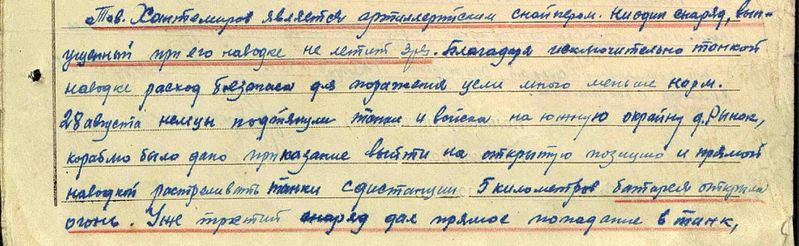 Тов. Хантемиров является артиллертским снайпером. Ни один снаряд, вып-
ущенный при его наводке не летит зря. Благодаря исключительно тонкой
наводке расход боезапаса для поражения цели много меньше норм.
28 августа немцы подтянули танки и войска на южную окрайну д. Рынок,
кораблю было дано приказание выйти на открытую позицию и прямой
наводкой растреливать танки с дистанции 5 километров батарея открыла
огонь. Уже третий снаряд дал прямое попадание в танк,